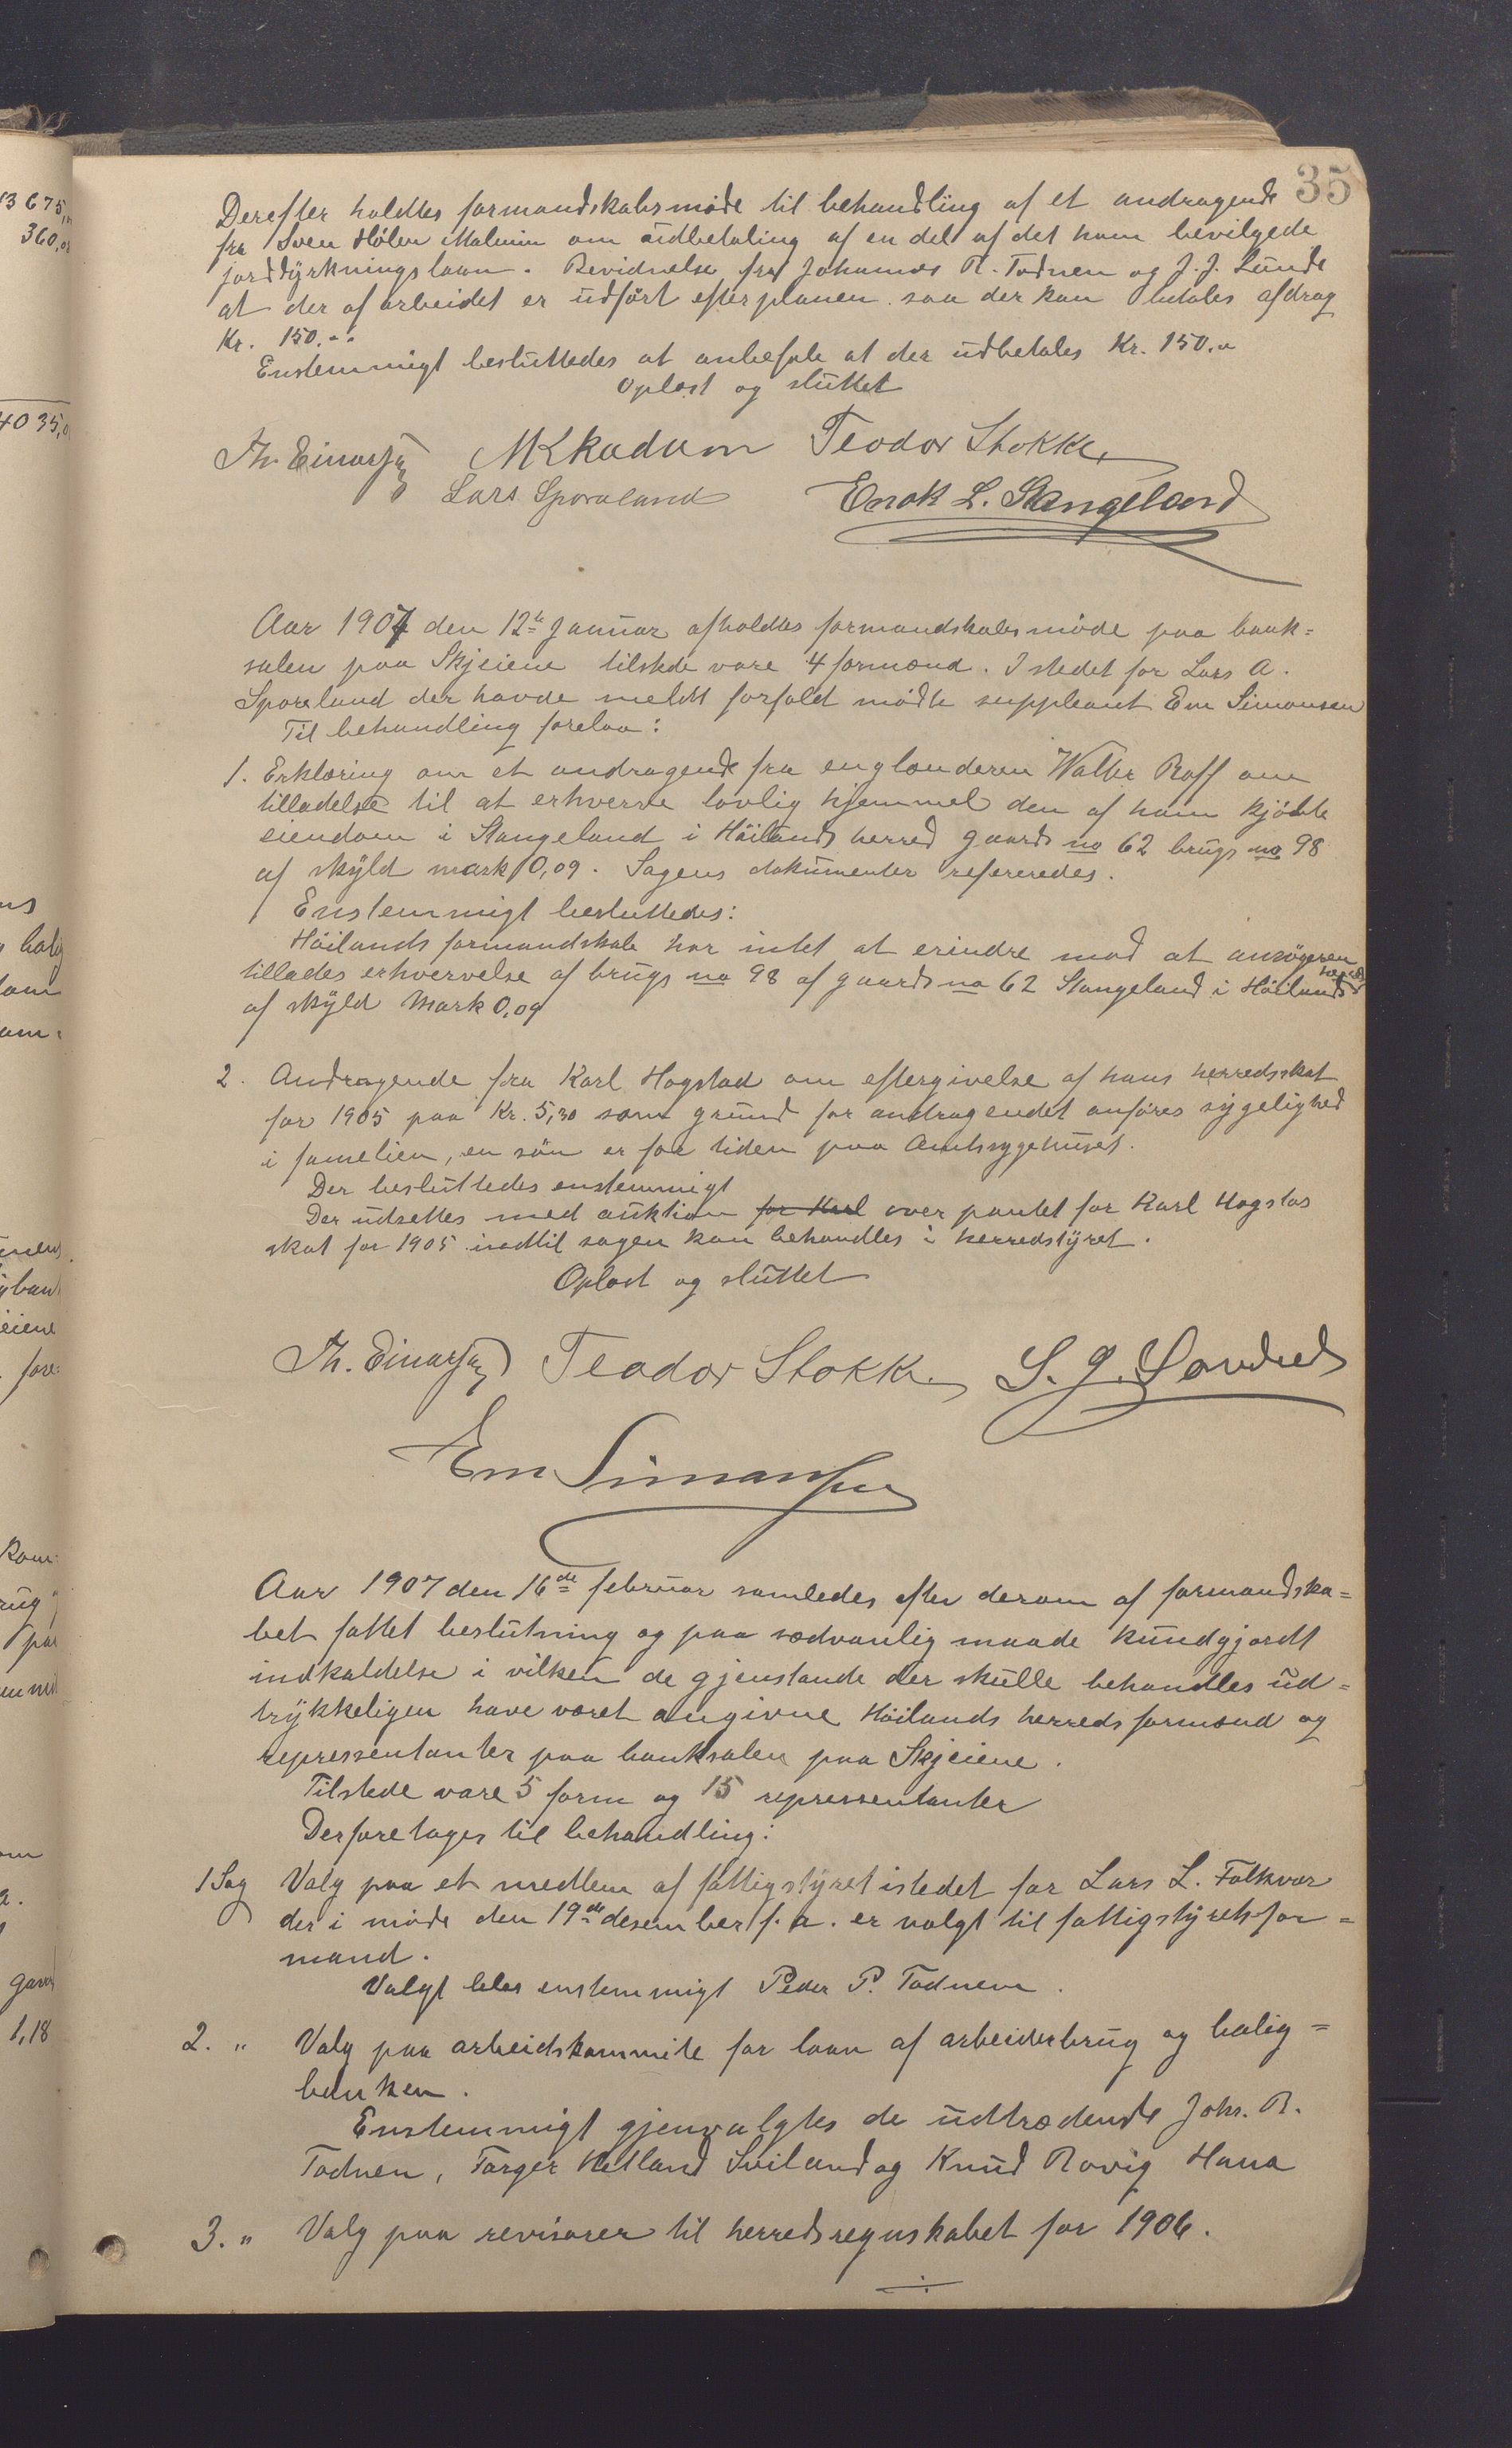 35
Derefter holdtes formandskabsmöde til behandling af et andragende
fra Sven Hölen Malmin om udbetaling af en del af det ham bevilgede
jorddyrkningslaan. Bevidnelse fra Johannes R. Todnem og J. J. Lunde
at der af arbeidet er udfört efter planen saa der kan betales afdrag
Kr. 150.--
Enstemmigt besluttedes at anbefale at der udbetales Kr. 150.-
Oplæst og sluttet
Th. Einarsen M K Kadum Teodor Stokke
Lars Sporaland Enok L. Stangeland
Aar 1907 den 12te Januar afholdtes formandskabsmöde paa bank=
salen paa Skjeiene tilstede vare 4 formænd. I stedet for Lars A.
Sporaland der havde meldt forfald mödte suppleant Em Simonsen
Til behandling forelaa:
1. Erklæring om et andragende fra englænderen Walter Roff om
tilladelse til at erhverve lovlig hjemmel den af ham kjöbte
eiendom i Stangeland i Höilands herred gaards no 62 brugs no 98
af skyld mark 0,09. Sagens dokumenter refereredes.
Enstemmigt besluttedes:
Höilands formandskab har intet at erindre mod at ansögeren
tillades erhvervelse af brugs no 98 af gaards no 62 Stangeland i Höilands herred
af skyld Mark 0,09
2. Andragende fra Karl Hogstad om eftergivelse af hans herredsskat
for 1905 paa Kr. 5,30 som grund for andragendet anföres sygelighed
i familien, en sön er for tiden paa Amtssygehuset.
Der besluttedes enstemmigt
Der udsettes med auktion for Karl over pantet for Karl Hogstas
skat for 1905 indtil sagen kan behandles i herredstyret.
Oplæst og sluttet
Th. Einarsen Teodor Stokke S. G.
Em Simonsen
Aar 1907 den 16de februar samledes efter derom af formandska=
bet fattet beslutning og paa sædvanlig maade kundgjordt
indkaldelse i vilken de gjenstande der skulle behandles ud=
trykkeligen have været angivne Höilands herreds formænd og
repressentanter paa banksalen paa Skjeiene.
Tilstede vare 5 form og 15 repressentanter
Der foretages til behandling:
1 Sag Valg paa et medlem af fattigstyret istedet for Lars L. Folkvor
der i möde den 19de desember f. a. er valgt til fattigstyrets for=
mand.
Valgt blev enstemmigt Peder P. Todnem.
2. " Valg paa arbeidskommite for laan af arbeiderbrug og bolig=
banken.
Enstemmigt gjenvalgtes de udtrædende Johs. R.
Todnem, Torger Hetland Sviland og Knud Rovig Hana
3. " Valg paa revisorer til herredsregnskabet for 1906.